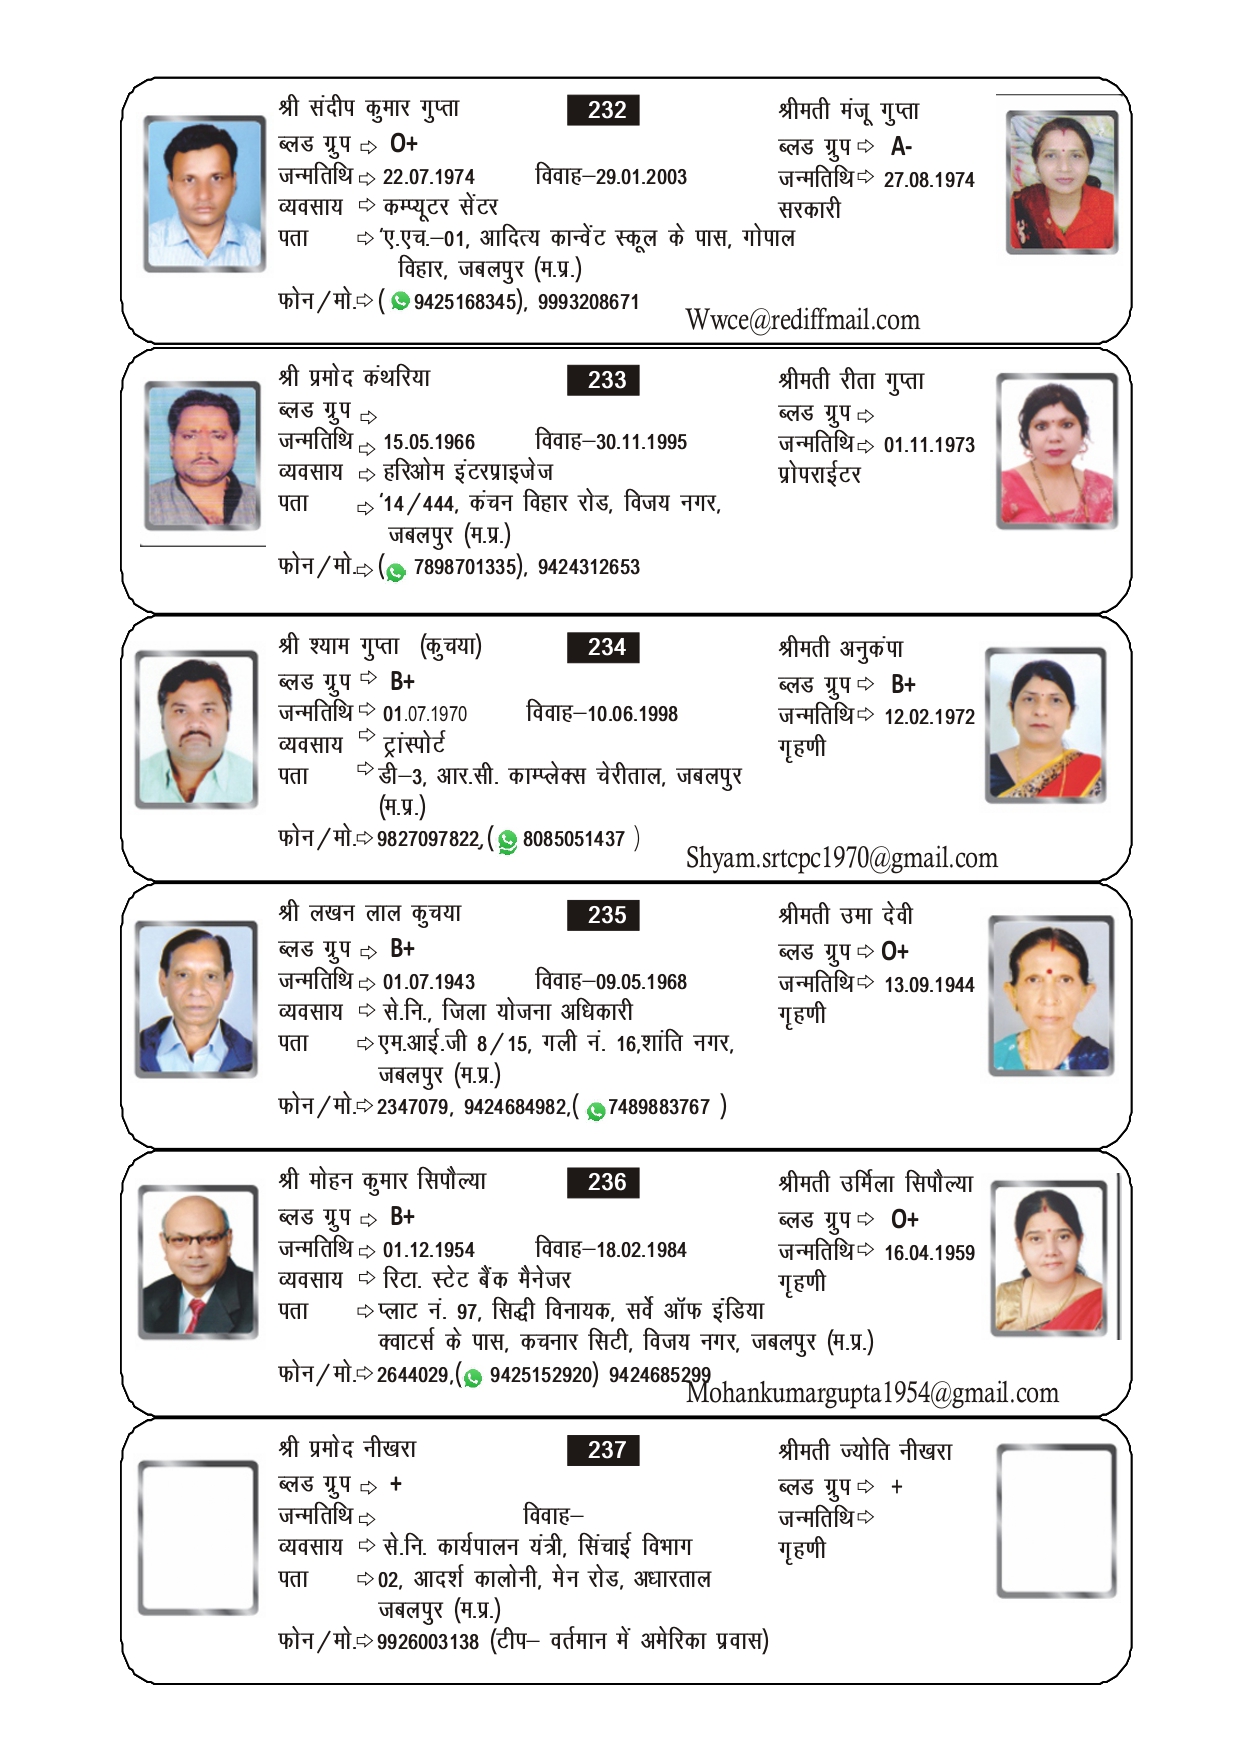 श्री संदीप कुमार गुप्ता 232 श्रीमती मंजू गुप्ता
ब्लड ग्रुप ⇨ O+ ब्लड ग्रुप ⇨ A-
जन्मतिथि ⇨ 22.07.1974 विवाह–29.01.2003 जन्मतिथि ⇨ 27.08.1974
व्यवसाय ⇨ कम्प्यूटर सेंटर सरकारी
पता ⇨ 'ए.एच.–01, आदित्य कान्वेंट स्कूल के पास, गोपाल
विहार, जबलपुर (म.प्र.)
फोन/मो.⇨ ( 9425168345), 9993208671
Wwce@rediffmail.com
श्री प्रमोद कंथरिया 233 श्रीमती रीता गुप्ता
ब्लड ग्रुप ⇨ ब्लड ग्रुप ⇨
जन्मतिथि ⇨ 15.05.1966 विवाह–30.11.1995 जन्मतिथि ⇨ 01.11.1973
व्यवसाय ⇨ हरिओम इंटरप्राइजेज प्रोपराईटर
पता ⇨ '14/444, कंचन विहार रोड, विजय नगर,
जबलपुर (म.प्र.)
फोन/मो.⇨ ( 7898701335), 9424312653
श्री श्याम गुप्ता (कुचया) 234 श्रीमती अनुकंपा
ब्लड ग्रुप ⇨ B+ ब्लड ग्रुप ⇨ B+
जन्मतिथि ⇨ 01.07.1970 विवाह–10.06.1998 जन्मतिथि ⇨ 12.02.1972
व्यवसाय ⇨ ट्रांस्पोर्ट गृहणी
पता ⇨ डी–3, आर.सी. काम्प्लेक्स चेरीताल, जबलपुर
(म.प्र.)
फोन/मो.⇨ 9827097822,( 8085051437 )
Shyam.srtcpc1970@gmail.com
श्री लखन लाल कुचया 235 श्रीमती उमा देवी
ब्लड ग्रुप ⇨ B+ ब्लड ग्रुप ⇨ O+
जन्मतिथि ⇨ 01.07.1943 विवाह–09.05.1968 जन्मतिथि ⇨ 13.09.1944
व्यवसाय ⇨ से.नि., जिला योजना अधिकारी गृहणी
पता ⇨ एम.आई.जी 8/15, गली नं. 16,शांति नगर,
जबलपुर (म.प्र.)
फोन/मो.⇨ 2347079, 9424684982,( 7489883767 )
श्री मोहन कुमार सिपौल्या 236 श्रीमती उर्मिला सिपौल्या
ब्लड ग्रुप ⇨ B+ ब्लड ग्रुप ⇨ O+
जन्मतिथि ⇨ 01.12.1954 विवाह–18.02.1984 जन्मतिथि ⇨ 16.04.1959
व्यवसाय ⇨ रिटा. स्टेट बैंक मैनेजर गृहणी
पता ⇨ प्लाट नं. 97, सिद्घी विनायक, सर्वे ऑफ इंडिया
क्वाटर्स के पास, कचनार सिटी, विजय नगर, जबलपुर (म.प्र.)
फोन/मो.⇨ 2644029,( 9425152920) 9424685299
Mohankumargupta1954@gmail.com
श्री प्रमोद नीखरा 237 श्रीमती ज्योति नीखरा
ब्लड ग्रुप ⇨ + ब्लड ग्रुप ⇨ +
जन्मतिथि ⇨ विवाह– जन्मतिथि ⇨
व्यवसाय ⇨ से.नि. कार्यपालन यंत्री, सिंचाई विभाग गृहणी
पता ⇨ 02, आदर्श कालोनी, मेन रोड, अधारताल
जबलपुर (म.प्र.)
फोन/मो.⇨ 9926003138 (टीप– वर्तमान में अमेरिका प्रवास)